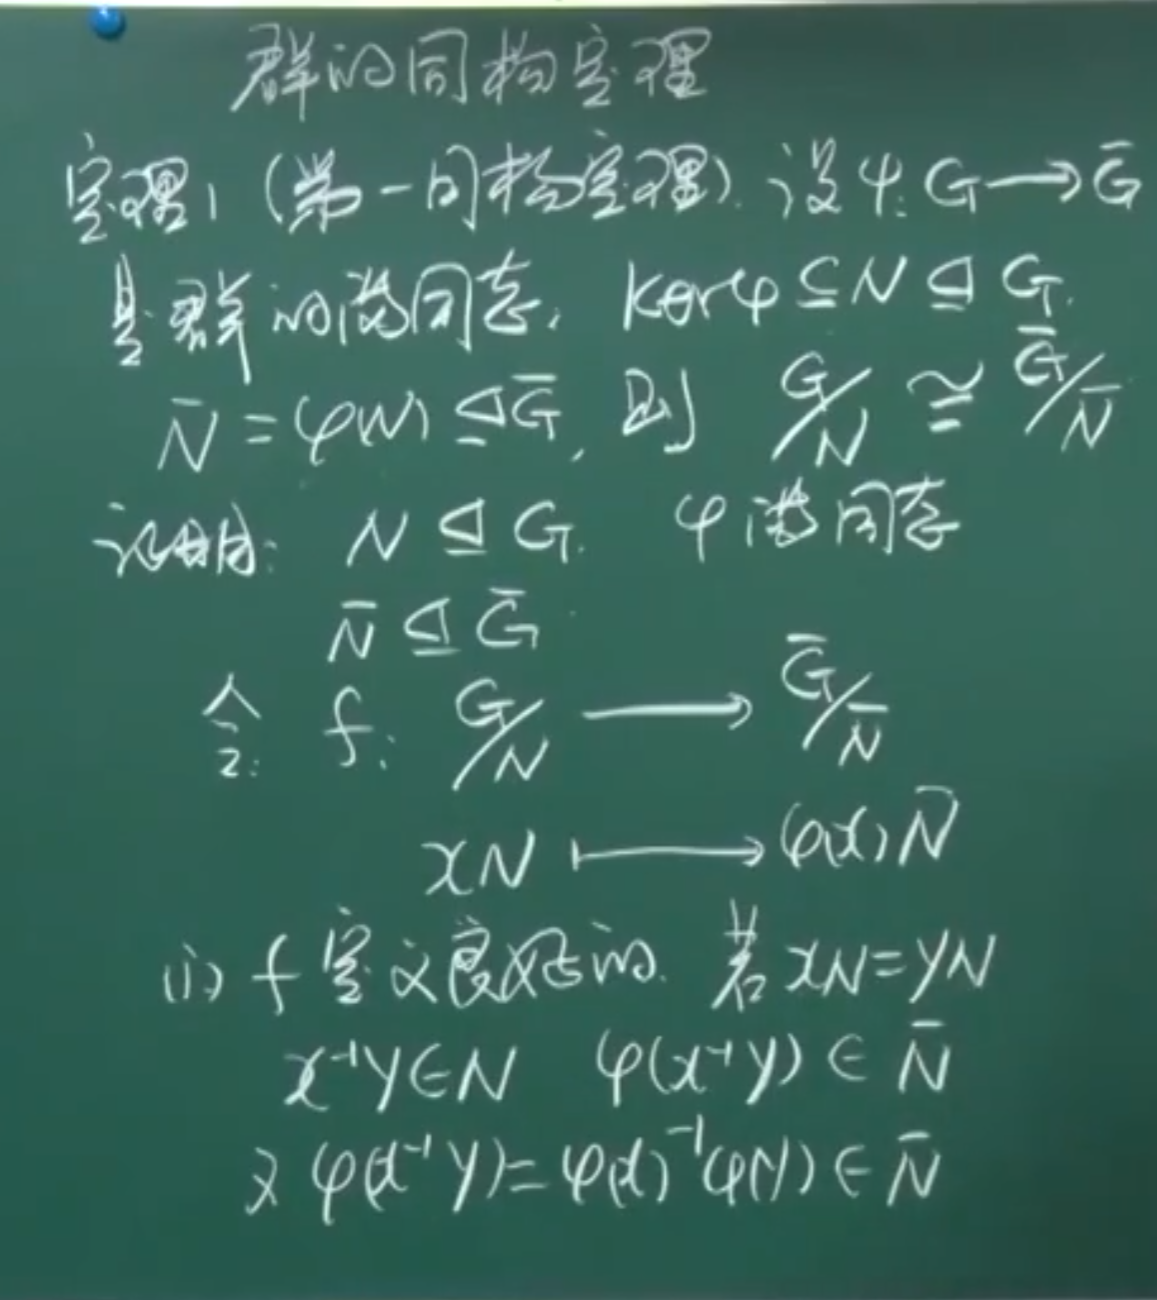 群的同构定理
定理1 (第一同构定理). 设φ: G⟶Ḡ
是群的满同态, Kerφ⊆N⊴G.
N̄=φ(N)⊴Ḡ, 则 G/N≅Ḡ/N̄
证明: N⊴G. φ满同态
N̄⊴Ḡ.
令: f: G/N⟶Ḡ/N̄
xN⟼φ(x)N̄
(i) f定义良好的. 若xN=yN
x⁻¹y∈N φ(x⁻¹y)∈N̄
又φ(x⁻¹y)=φ(x)⁻¹φ(y)∈N̄